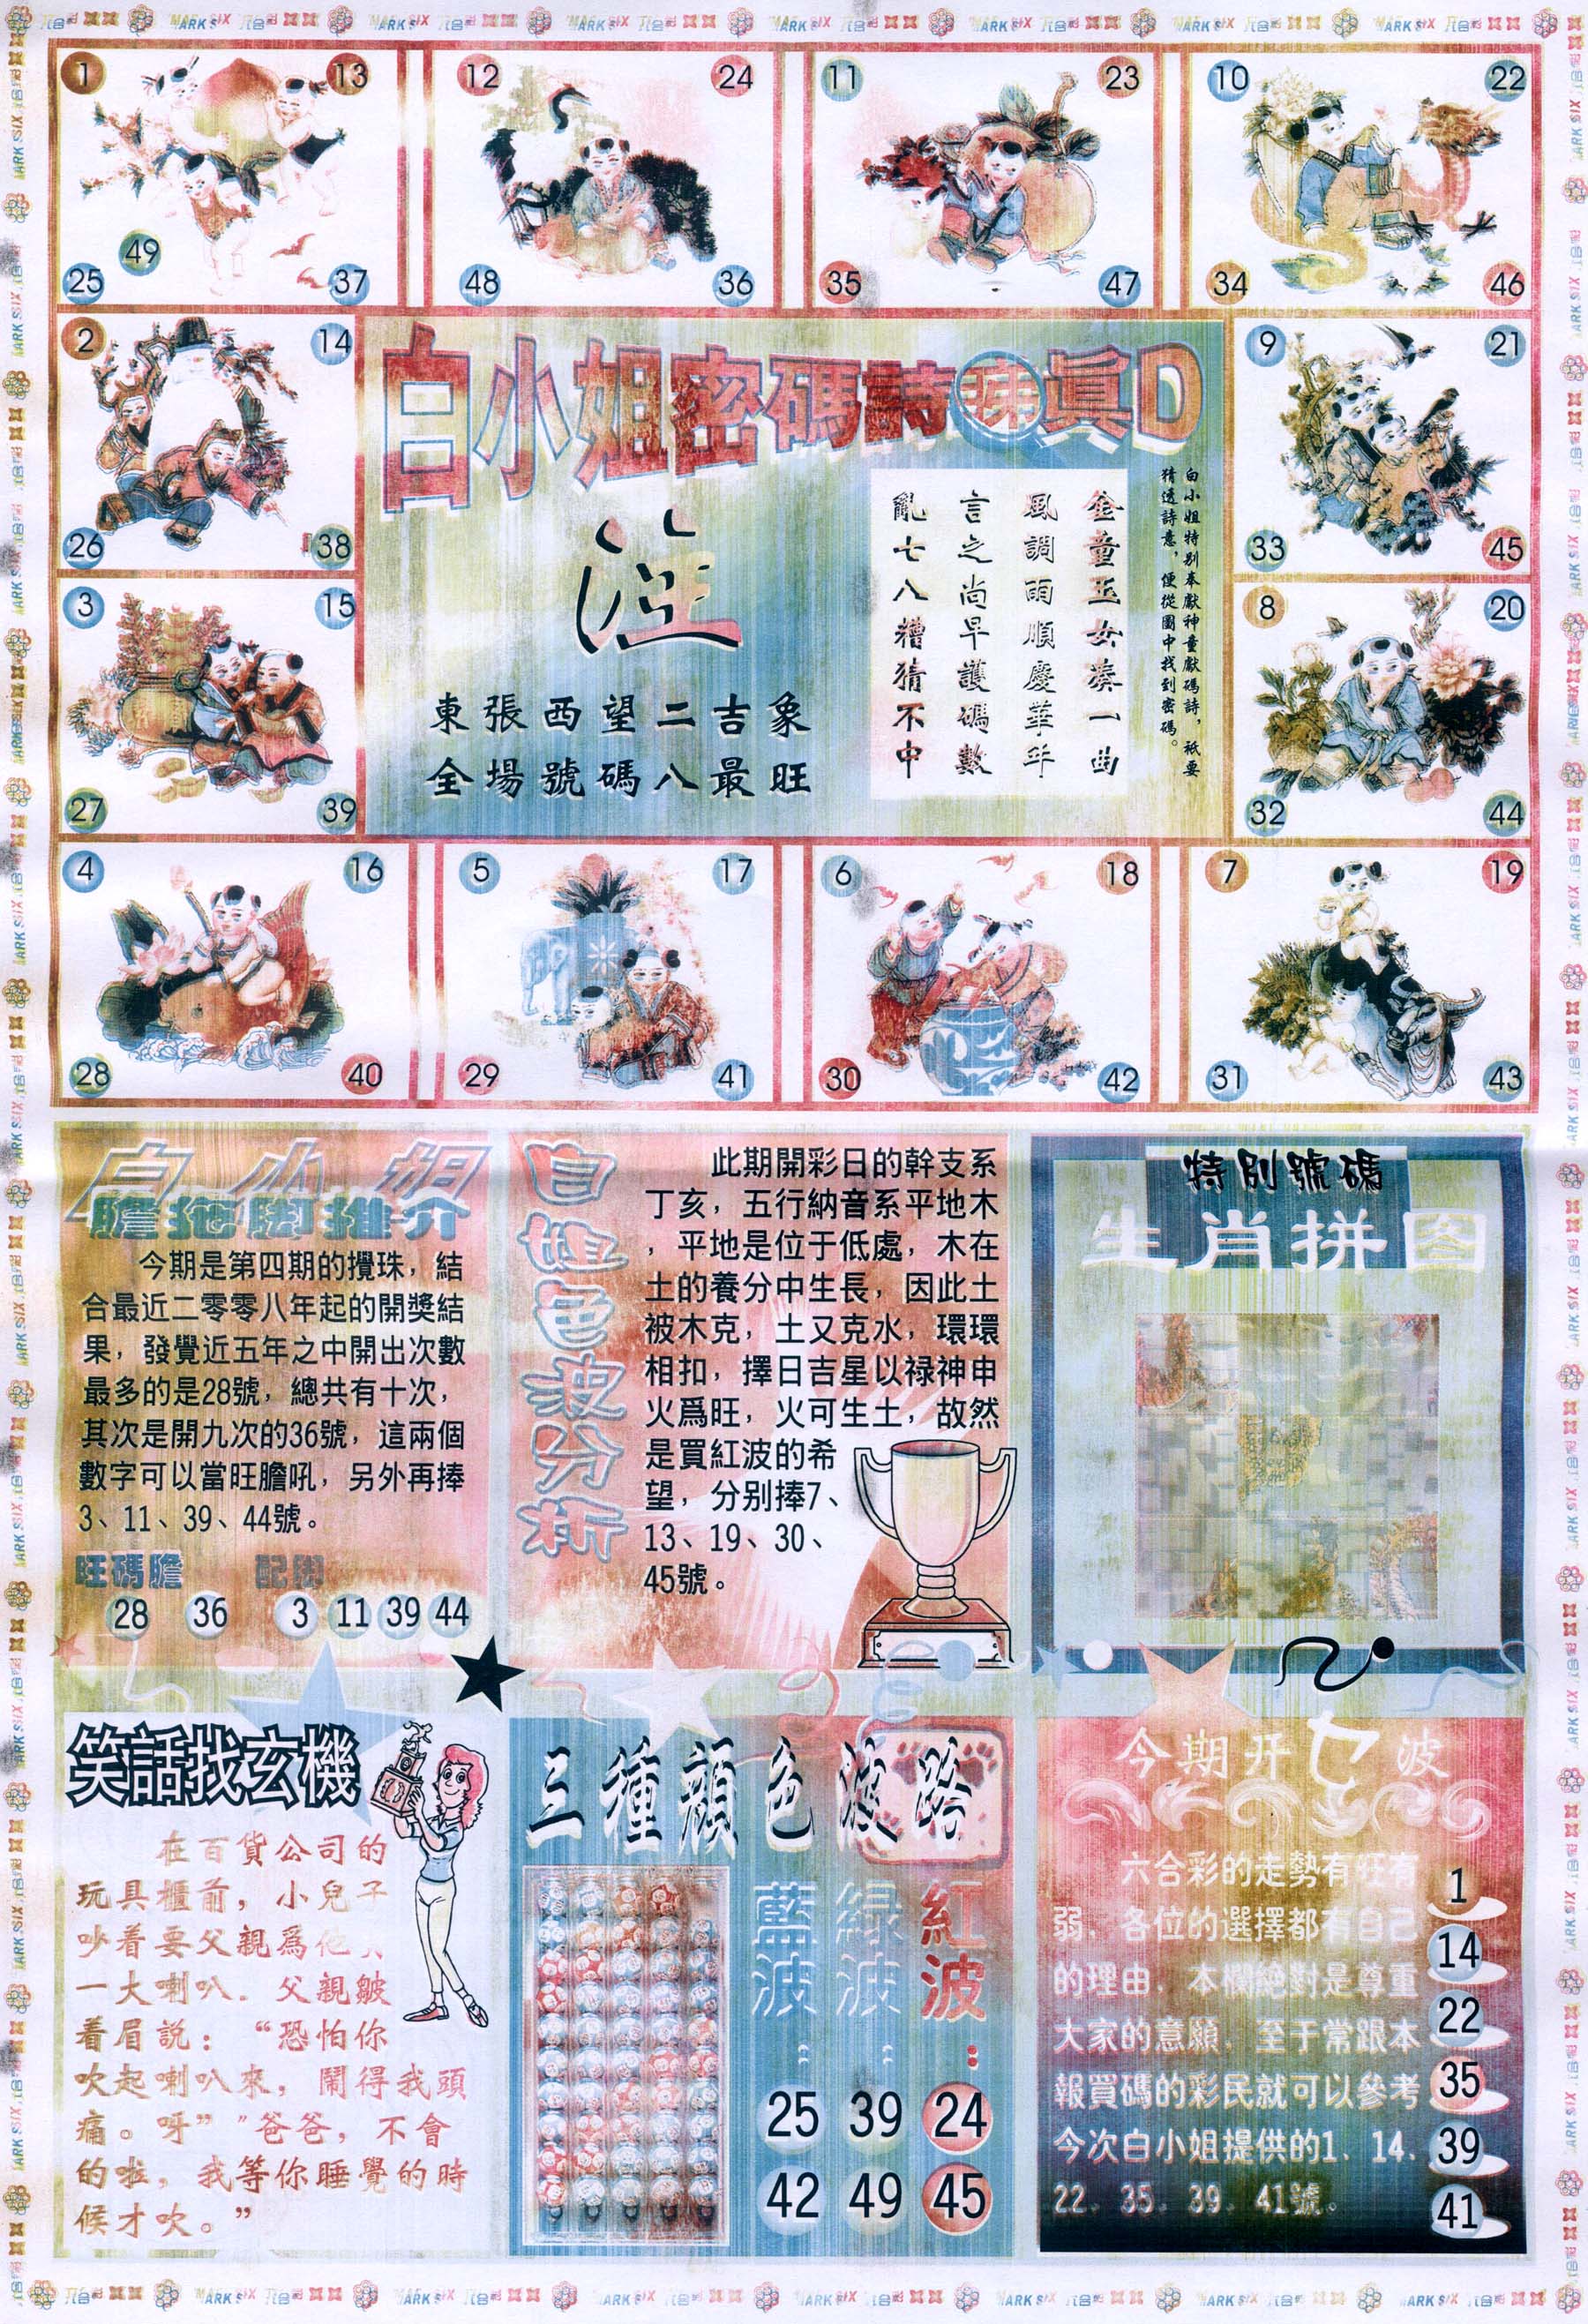 1 13
49
25 37
12 24
48 36
11 23
35 47
10 22
34 46
2 14
26 38
白小姐密碼詩 眞D
注
東張西望二吉象
全場號碼八最旺
白小姐特別奉獻神童獻碼詩，祇要
猜透詩意，便從圖中找到密碼。
金童玉女湊一曲
風調雨順慶華年
言之尚早護碼數
亂七八糟猜不中
9 21
33 45
3 15
27 39
8 20
32 44
4 16
28 40
5 17
29 41
6 18
30 42
7 19
31 43
白小姐
膽拖脚推介
今期是第四期的攪珠，結
合最近二零零八年起的開獎結
果，發覺近五年之中開出次數
最多的是28號，總共有十次，
其次是開九次的36號，這兩個
數字可以當旺膽吼，另外再捧
3、11、39、44號。
旺碼膽 配脚
28 36 3 11 39 44
白姐色波分析
此期開彩日的幹支系
丁亥，五行納音系平地木
，平地是位于低處，木在
土的養分中生長，因此土
被木克，土又克水，環環
相扣，擇日吉星以禄神申
火爲旺，火可生土，故然
是買紅波的希
望，分别捧7、
13、19、30、
45號。
特别號碼
生肖拼图
笑話找玄機
在百貨公司的
玩具櫃前，小兒子
吵着要父親爲他
一大喇叭．父親皺
着眉説：“恐怕你
吹起喇叭來，鬧得我頭
痛。呀””爸爸，不會
的啦，我等你睡覺的時
候才吹。”
三種顔色波路
藍波： 緑波： 紅波：
25 39 24
42 49 45
今期开七波
六合彩的走勢有旺有
弱，各位的選擇都有自己
的理由，本欄絶對是尊重
大家的意願，至于常跟本
報買碼的彩民就可以參考
今次白小姐提供的1、14、
22、35、39、41號。
1
14
22
35
39
41